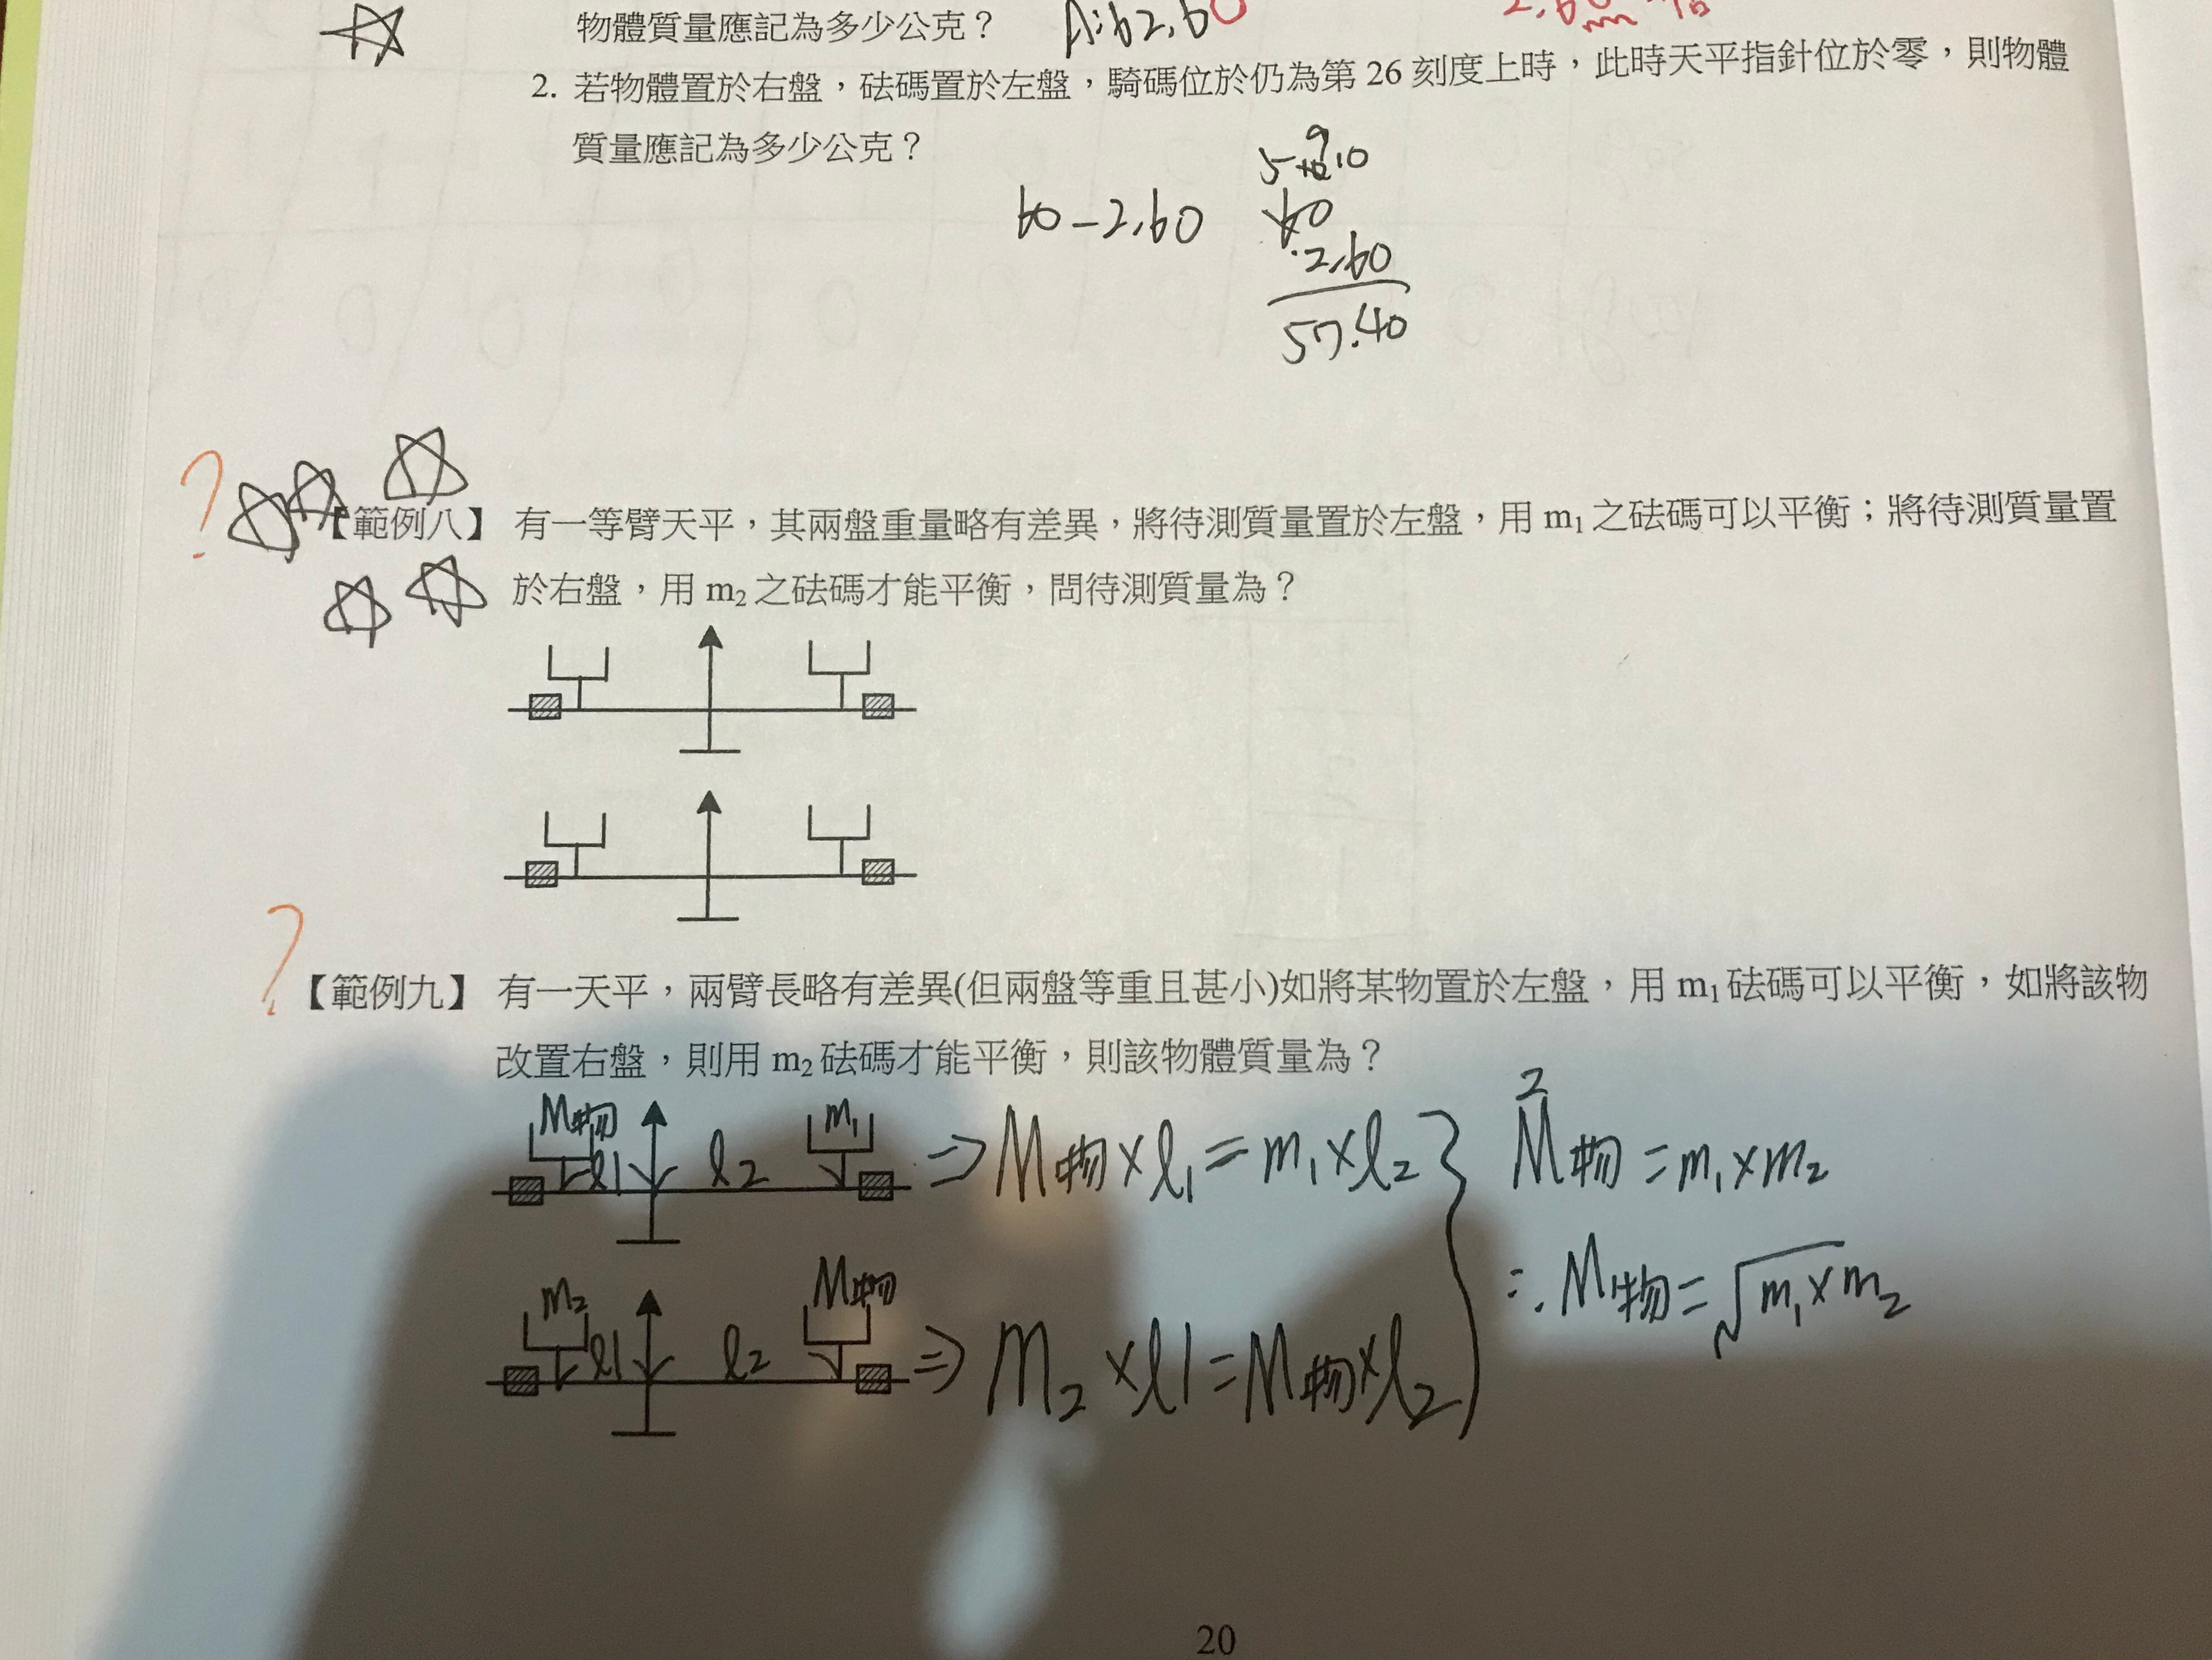 物體質量應記為多少公克？ A:62.60
2.60
2. 若物體置於右盤，砝碼置於左盤，騎碼位於仍為第 26 刻度上時，此時天平指針位於零，則物體
質量應記為多少公克？
9
5 10 10
60-2.60 60
2.60
57.40
?
【範例八】 有一等臂天平，其兩盤重量略有差異，將待測質量置於左盤，用 m₁ 之砝碼可以平衡；將待測質量置
於右盤，用 m₂ 之砝碼才能平衡，問待測質量為？
?
【範例九】 有一天平，兩臂長略有差異(但兩盤等重且甚小)如將某物置於左盤，用 m₁ 砝碼可以平衡，如將該物
改置右盤，則用 m₂ 砝碼才能平衡，則該物體質量為？
M物 m₁
ℓ1 ℓ2 ⇒ M物×ℓ₁=m₁×ℓ₂ M物²=m₁×m₂
∴M物=√m₁×m₂
m₂ M物
ℓ1 ℓ2 ⇒ m₂×ℓ1=M物×ℓ₂
20